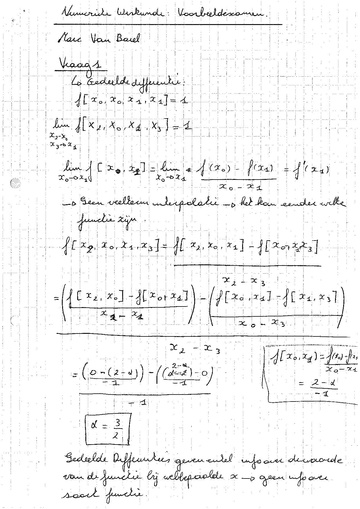 Numerieke Wiskunde: Voorbeeldexamen.
Marc Van Barel
Vraag 1
↳ Gedeelde differentie:
f[x₀, x₀, x₁, x₁] = 1
lim f[x₂, x₀, x₁, x₃] = 1
x₂→x₀
x₃→x₁
lim f[x₀, x₁] = lim f(x₀) - f(x₁) / x₀ - x₁ = f'(x₁)
x₀→x₁ x₀→x₁
→ Geen veelterm interpolatie → het kan eender welke
functie zijn.
f[x₂, x₀, x₁, x₃] = f[x₂, x₀, x₁] - f[x₀, x₁, x₃]
x₂ - x₃
= (f[x₂, x₀] - f[x₀, x₁] / x₂ - x₁) - (f[x₀, x₁] - f[x₁, x₃] / x₀ - x₃)
x₂ - x₃
f[x₀, x₁] = f(x₀) - f(x₁) / x₀ - x₁
= 2-α / -1
= (0 - (2-α) / -1) - ((2-α) - 0 / -1)
-1
α = 3/2
Gedeelde Differenties geven enkel info over de waarde
van de functie bij welbepaalde x → geen info over
soort functie.